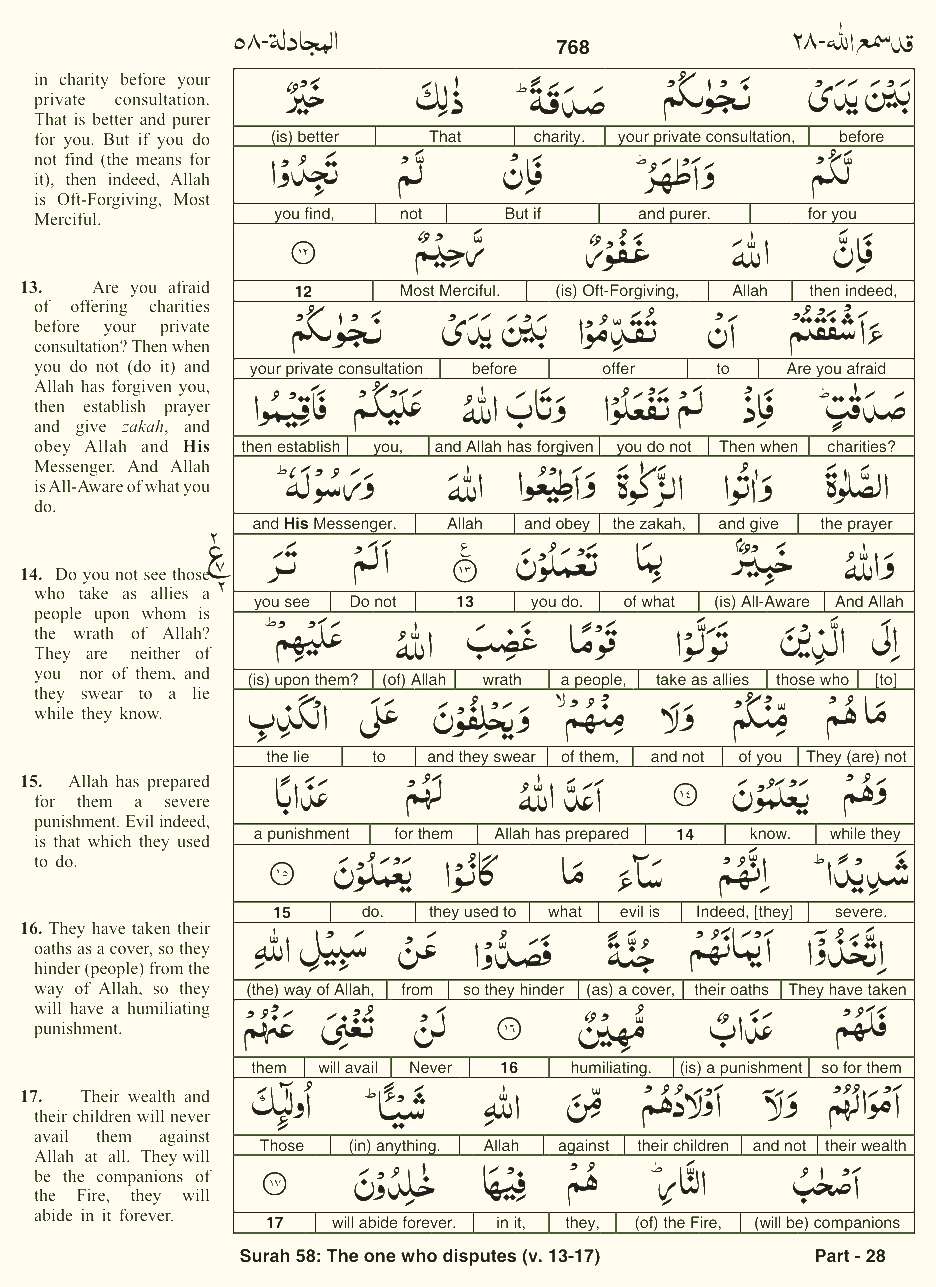 المجادلة-٥٨ 768 قد سمع الله-٢٨
in charity before your
private consultation.
That is better and purer
for you. But if you do
not find (the means for
it), then indeed, Allah
is Oft-Forgiving, Most
Merciful.
13. Are you afraid
of offering charities
before your private
consultation? Then when
you do not (do it) and
Allah has forgiven you,
then establish prayer
and give zakah, and
obey Allah and His
Messenger. And Allah
is All-Aware of what you
do.
14. Do you not see those
who take as allies a
people upon whom is
the wrath of Allah?
They are neither of
you nor of them, and
they swear to a lie
while they know.
15. Allah has prepared
for them a severe
punishment. Evil indeed,
is that which they used
to do.
16. They have taken their
oaths as a cover, so they
hinder (people) from the
way of Allah, so they
will have a humiliating
punishment.
17. Their wealth and
their children will never
avail them against
Allah at all. They will
be the companions of
the Fire, they will
abide in it forever.
بَيْنَ يَدَىْ نَجْوٰىكُمْ صَدَقَةً ؕ ذٰلِكَ خَيْرٌ
(is) better That charity. your private consultation, before
لَّكُمْ وَاَطْهَرُ ؕ فَاِنْ لَّمْ تَجِدُوْا
you find, not But if and purer. for you
فَاِنَّ اللّٰهَ غَفُوْرٌ رَّحِيْمٌ ١٢
12 Most Merciful. (is) Oft-Forgiving, Allah then indeed,
ءَاَشْفَقْتُمْ اَنْ تُقَدِّمُوْا بَيْنَ يَدَىْ نَجْوٰىكُمْ
your private consultation before offer to Are you afraid
صَدَقٰتٍ ؕ فَاِذْ لَمْ تَفْعَلُوْا وَتَابَ اللّٰهُ عَلَيْكُمْ فَاَقِيْمُوا
then establish you, and Allah has forgiven you do not Then when charities?
الصَّلٰوةَ وَاٰتُوا الزَّكٰوةَ وَاَطِيْعُوا اللّٰهَ وَرَسُوْلَهٗ ؕ
and His Messenger. Allah and obey the zakah, and give the prayer
وَاللّٰهُ خَبِيْرٌۢ بِمَا تَعْمَلُوْنَ ١٣ ع اَلَمْ تَرَ ٢ ع ٧ ٢
you see Do not 13 you do. of what (is) All-Aware And Allah
اِلَى الَّذِيْنَ تَوَلَّوْا قَوْمًا غَضِبَ اللّٰهُ عَلَيْهِمْ ؕ
(is) upon them? (of) Allah wrath a people, take as allies those who [to]
مَا هُمْ مِّنْكُمْ وَلَا مِنْهُمْ ۙ وَيَحْلِفُوْنَ عَلَى الْكَذِبِ
the lie to and they swear of them, and not of you They (are) not
وَهُمْ يَعْلَمُوْنَ ١٤ اَعَدَّ اللّٰهُ لَهُمْ عَذَابًا
a punishment for them Allah has prepared 14 know. while they
شَدِيْدًا ؕ اِنَّهُمْ سَآءَ مَا كَانُوْا يَعْمَلُوْنَ ١٥
15 do. they used to what evil is Indeed, [they] severe.
اِتَّخَذُوْۤا اَيْمَانَهُمْ جُنَّةً فَصَدُّوْا عَنْ سَبِيْلِ اللّٰهِ
(the) way of Allah, from so they hinder (as) a cover, their oaths They have taken
فَلَهُمْ عَذَابٌ مُّهِيْنٌ ١٦ لَنْ تُغْنِىَ عَنْهُمْ
them will avail Never 16 humiliating. (is) a punishment so for them
اَمْوَالُهُمْ وَلَاۤ اَوْلَادُهُمْ مِّنَ اللّٰهِ شَيْـًٔا ؕ اُولٰٓئِكَ
Those (in) anything. Allah against their children and not their wealth
اَصْحٰبُ النَّارِ ؕ هُمْ فِيْهَا خٰلِدُوْنَ ١٧
17 will abide forever. in it, they, (of) the Fire, (will be) companions
Surah 58: The one who disputes (v. 13-17) Part - 28